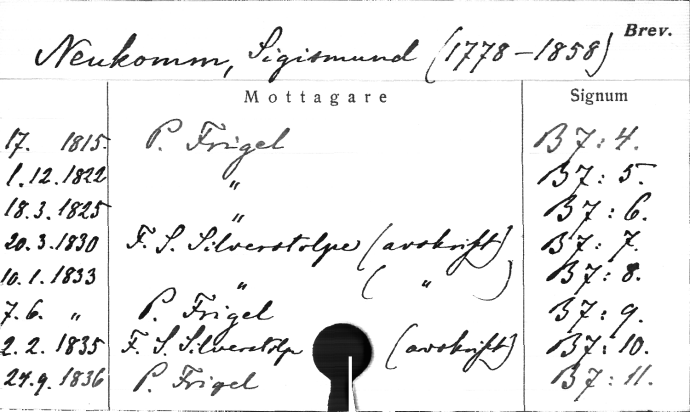 Brev.
Neukomm, Sigismund (1778-1858)
Mottagare Signum
17. 1815. P. Frigel B 7:4.
1.12.1822 " B 7:5.
18.3.1825 " B 7:6.
20.3.1830 F. S. Silverstolpe (avskrift) B 7:7.
10.1.1833 " ( " ) B 7:8.
7.6. " P. Frigel B 7:9.
2.2.1835 F. S. Silverstolpe (avskrift) B 7:10.
27.9.1836 P. Frigel B 7:11.